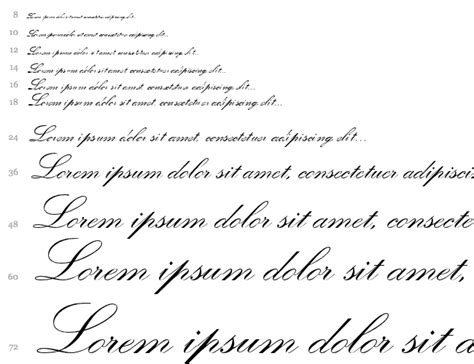 8 Lorem ipsum dolor sit amet consectetur adipiscing elit...
10 Lorem ipsum dolor sit amet, consectetur adipiscing elit...
12 Lorem ipsum dolor sit amet, consectetuer adipiscing elit...
14 Lorem ipsum dolor sit amet, consectetuer adipiscing elit...
16 Lorem ipsum dolor sit amet, consectetuer adipiscing elit...
18 Lorem ipsum dolor sit amet, consectetuer adipiscing elit...
24 Lorem ipsum dolor sit amet, consectetuer adipiscing elit...
36 Lorem ipsum dolor sit amet, consectetuer adipisci
48 Lorem ipsum dolor sit amet, consecte
60 Lorem ipsum dolor sit amet,
72 Lorem ipsum dolor sit a